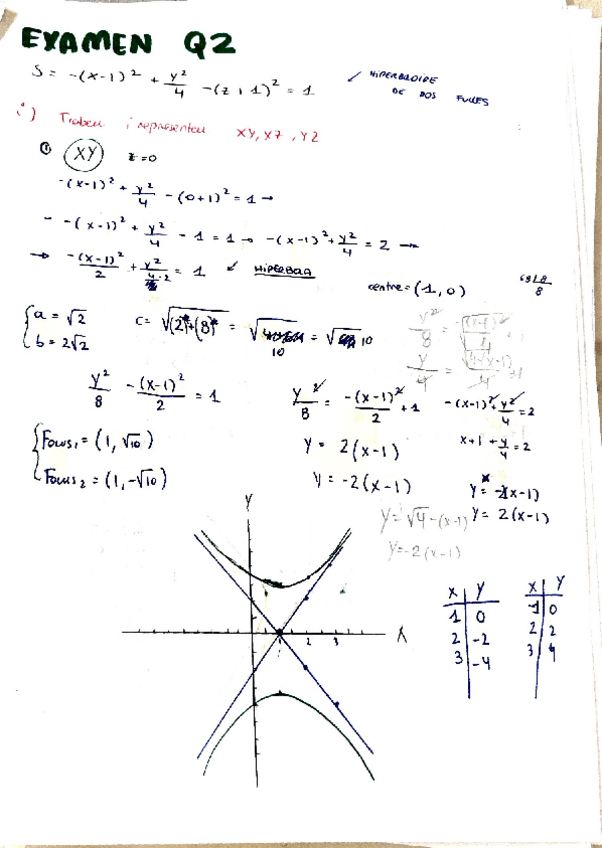 EXAMEN Q2
S = -(x-1)² + y²/4 - (z+1)² = 1 ✓ HIPERBOLOIDE DE DOS FULLES
i) Trobeu i representeu XY, XZ, YZ
① XY z=0
-(x-1)² + y²/4 - (0+1)² = 1 →
- -(x-1)² + y²/4 - 1 = 1 → -(x-1)² + y²/4 = 2 →
→ -(x-1)²/2 + y²/(4·2) = 1 ✓ HIPERBOLA
centre = (1,0)
{ a = √2
b = 2√2
c = √((2)+(8)) = √10 = √10
y²/8 - (x-1)²/2 = 1
y²/8 = -(x-1)²/2 + 1
y = 2(x-1)
y = -2(x-1)
-(x-1)² + y²/4 = 2
x+1 + y/4 = 2
y = -2(x-1)
y = 2(x-1)
{ Focus₁ = (1, √10)
Focus₂ = (1, -√10)
y = √4-(x-1)
y = -2(x-1)
Y
X
1 2 3
x | y
1 | 0
2 | -2
3 | -4
x | y
1 | 0
2 | 2
3 | 4